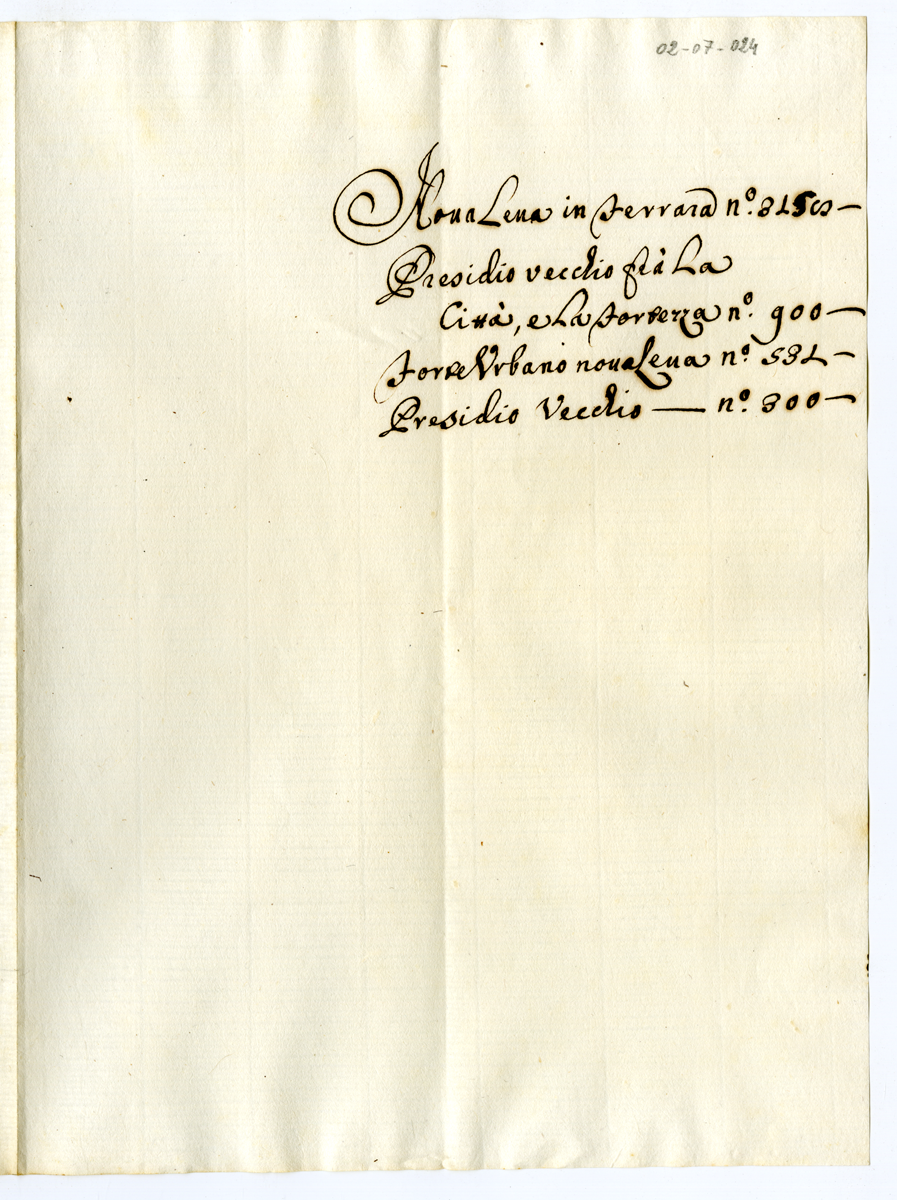 02-07-024
Noua Leua in Ferrara nº.
Presidio vecchio frà La
Città, e La Fortezza nº. 900—
Forte Vrbano noua Leua nº. 531—
Presidio Vecchio — nº. 300—